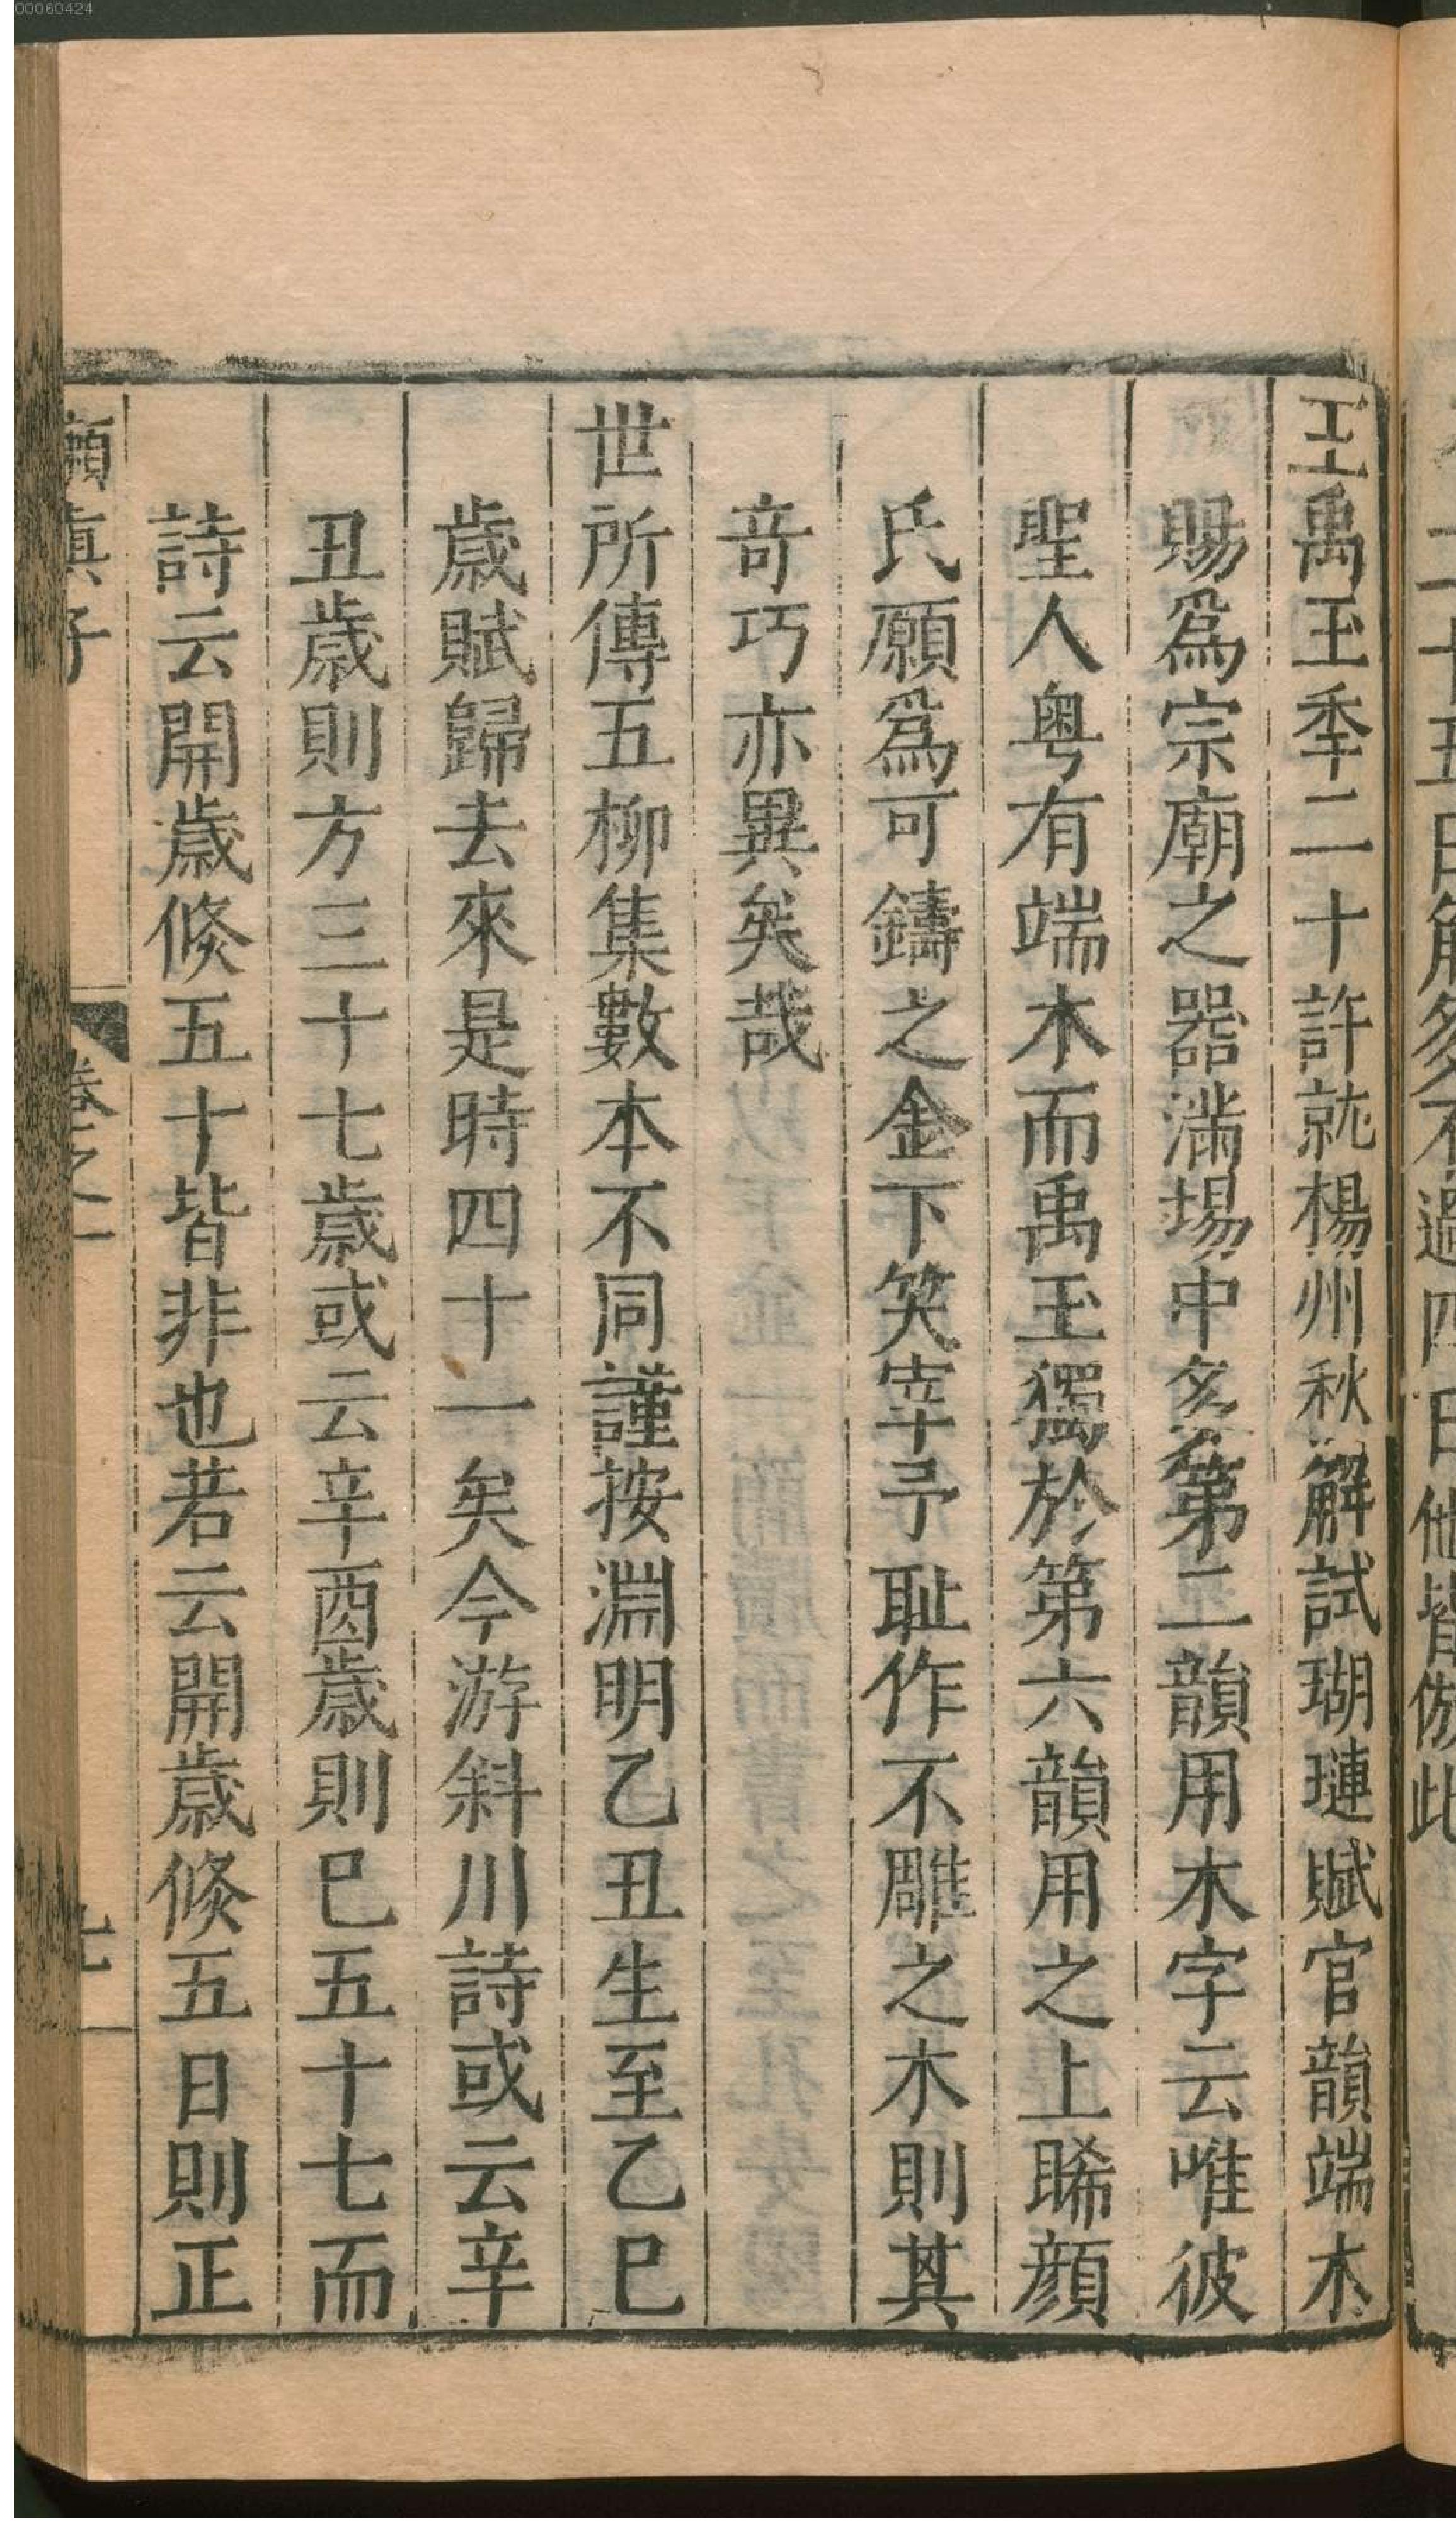 二十五日解多不過四日他皆倣此
王禹玉季二十許就楊州秋解試瑚璉賦官韻端木
賜爲宗廟之器滿場中多第二韻用木字云唯彼
聖人粤有端木而禹玉獨於第六韻用之上睎顔
氏願爲可鑄之金下笑宰予耻作不雕之木則其
竒巧亦異矣哉
世所傳五柳集數本不同謹按淵明乙丑生至乙巳
歳賦歸去來是時四十一矣今游斜川詩或云辛
丑歳則方三十七歳或云辛酉歳則巳五十七而
詩云開歳倐五十皆非也若云開歳倐五日則正
嬾真子 卷之一
00060424